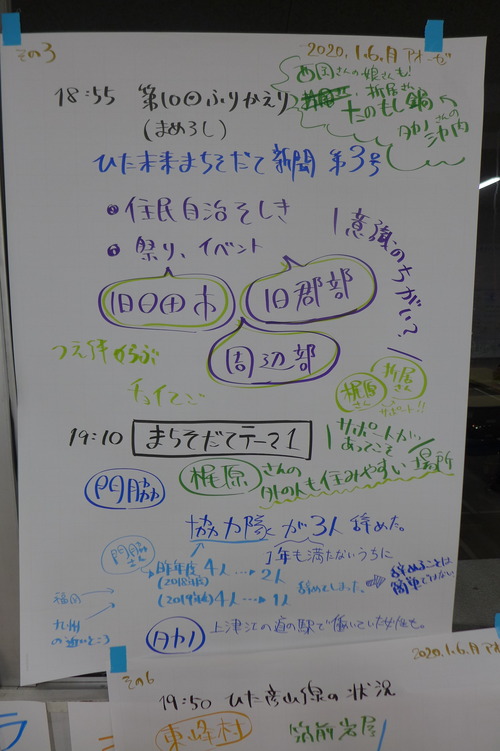 その3
2020.1.6.月 アオーゼ
18:55 第10回ふりかえり
(まめろし)
西国さんの娘さんも!
折居さん
たのもし鍋
ひた未来まちそだて新聞 第3号
住民自治そしき
祭り、イベント
意識のちがい?
旧日田市
旧郡部
周辺部
チョイてご
折居さん
梶原さん
サポート!!
19:10 まちそだてテーマ1
サポートがあってこそ
門脇
梶原さんの
外の人も住みやすい場所
協力隊が3人辞めた。
1年も満たないうちに
門脇さん
昨年度 4人…→2人
(2018年度)
(2019年度) 4人…→1人
辞めてしまった。
辞めることは簡単ではない
福岡
九州の近いところ
上津江の道の駅で働いていた女性も。
その6
2020.1.6.月
19:50 ひた彦山線の状況
東峰村
筑前岩屋